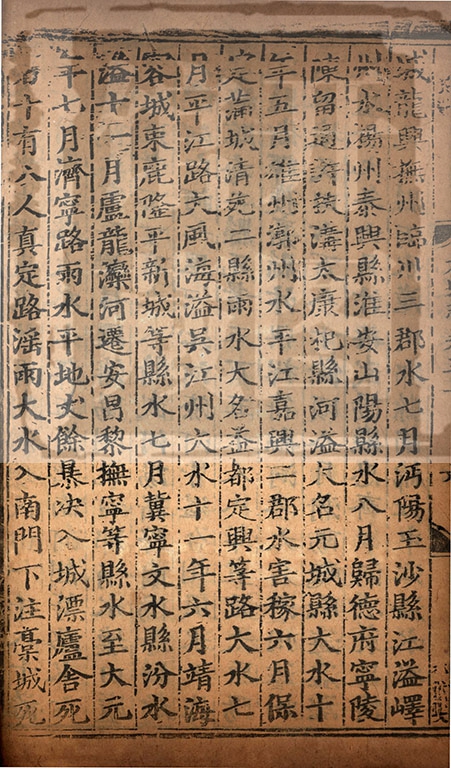 城龍興撫州臨川三郡水七月沔陽玉沙縣江溢嶧
州水揚州泰興縣淮安山陽縣水八月歸德府寧陵
陳留通許扶溝太康杞縣河溢大名元城縣大水十
年五月雄州漷州水平江嘉興二郡水害稼六月保
定蒲城清苑二縣雨水大名益都定興等路大水七
月平江路大風海溢吳江州大水十一年六月靖海
容城束鹿隆平新城等縣水七月冀寧文水縣汾水
溢十一月盧龍灤河遷安昌黎撫寧等縣水至大元
年七月濟寧路雨水平地丈餘暴决入城漂廬舍死
者十有八人真定路淫雨大水入南門下注藁城死